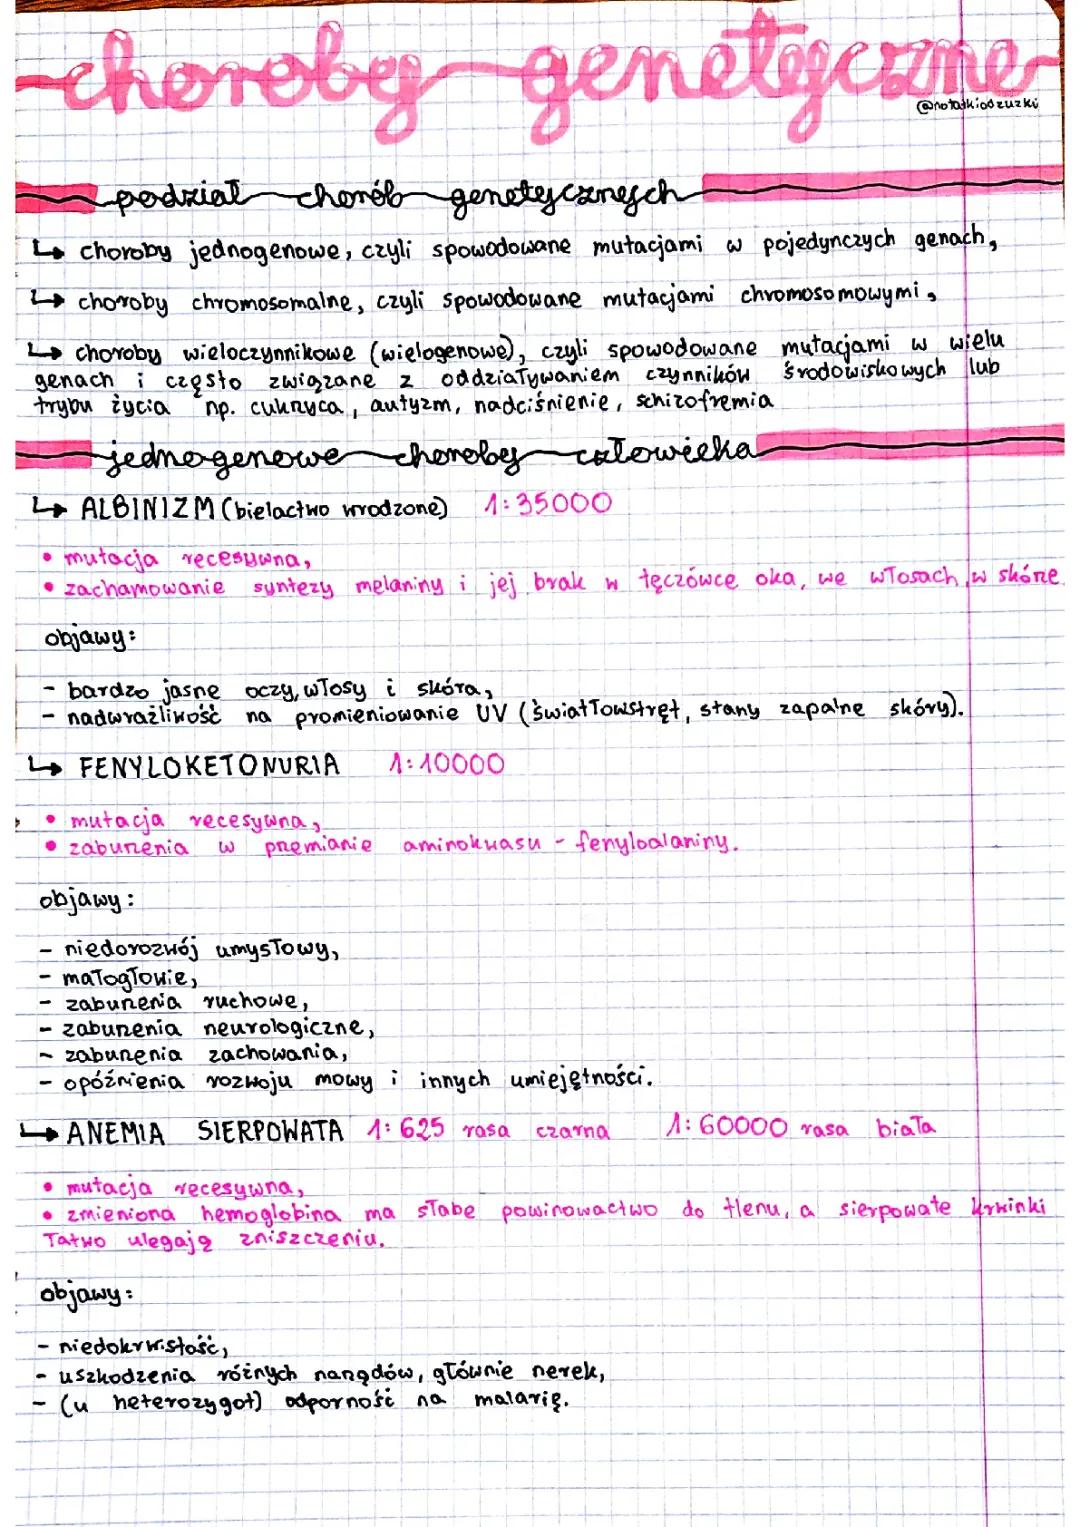 choroby genetyczne
@notatkiodzuzki
podział chorób genetycznych
↳ choroby jednogenowe, czyli spowodowane mutacjami w pojedynczych genach,
↳ choroby chromosomalne, czyli spowodowane mutacjami chromosomowymi,
↳ choroby wieloczynnikowe (wielogenowe), czyli spowodowane mutacjami w wielu
genach i często związane z oddziaływaniem czynników środowiskowych lub
trybu życia np. cukrzyca, autyzm, nadciśnienie, schizofremia
jednogenowe choroby człowieka
↳ ALBINIZM (bielactwo wrodzone) 1:35000
• mutacja recesywna,
• zachamowanie syntezy melaniny i jej brak w tęczówce oka, we włosach, w skórze.
objawy:
- bardzo jasne oczy, włosy i skóra,
- nadwrażliwość na promieniowanie UV (światłowstręt, stany zapalne skóry).
↳ FENYLOKETONURIA 1:10000
• mutacja recesywna,
• zaburzenia w przemianie aminokwasu - fenyloalaniny.
objawy:
- niedorozwój umysłowy,
- małogłowie,
- zaburzenia ruchowe,
- zaburzenia neurologiczne,
- zaburzenia zachowania,
- opóźnienia rozwoju mowy i innych umiejętności.
↳ ANEMIA SIERPOWATA 1:625 rasa czarna 1:60000 rasa biała
• mutacja recesywna,
• zmieniona hemoglobina ma słabe powinowactwo do tlenu, a sierpowate krwinki
łatwo ulegają zniszczeniu.
objawy:
- niedokrwistość,
- uszkodzenia różnych narządów, głównie nerek,
- (u heterozygot) odporność na malarię.